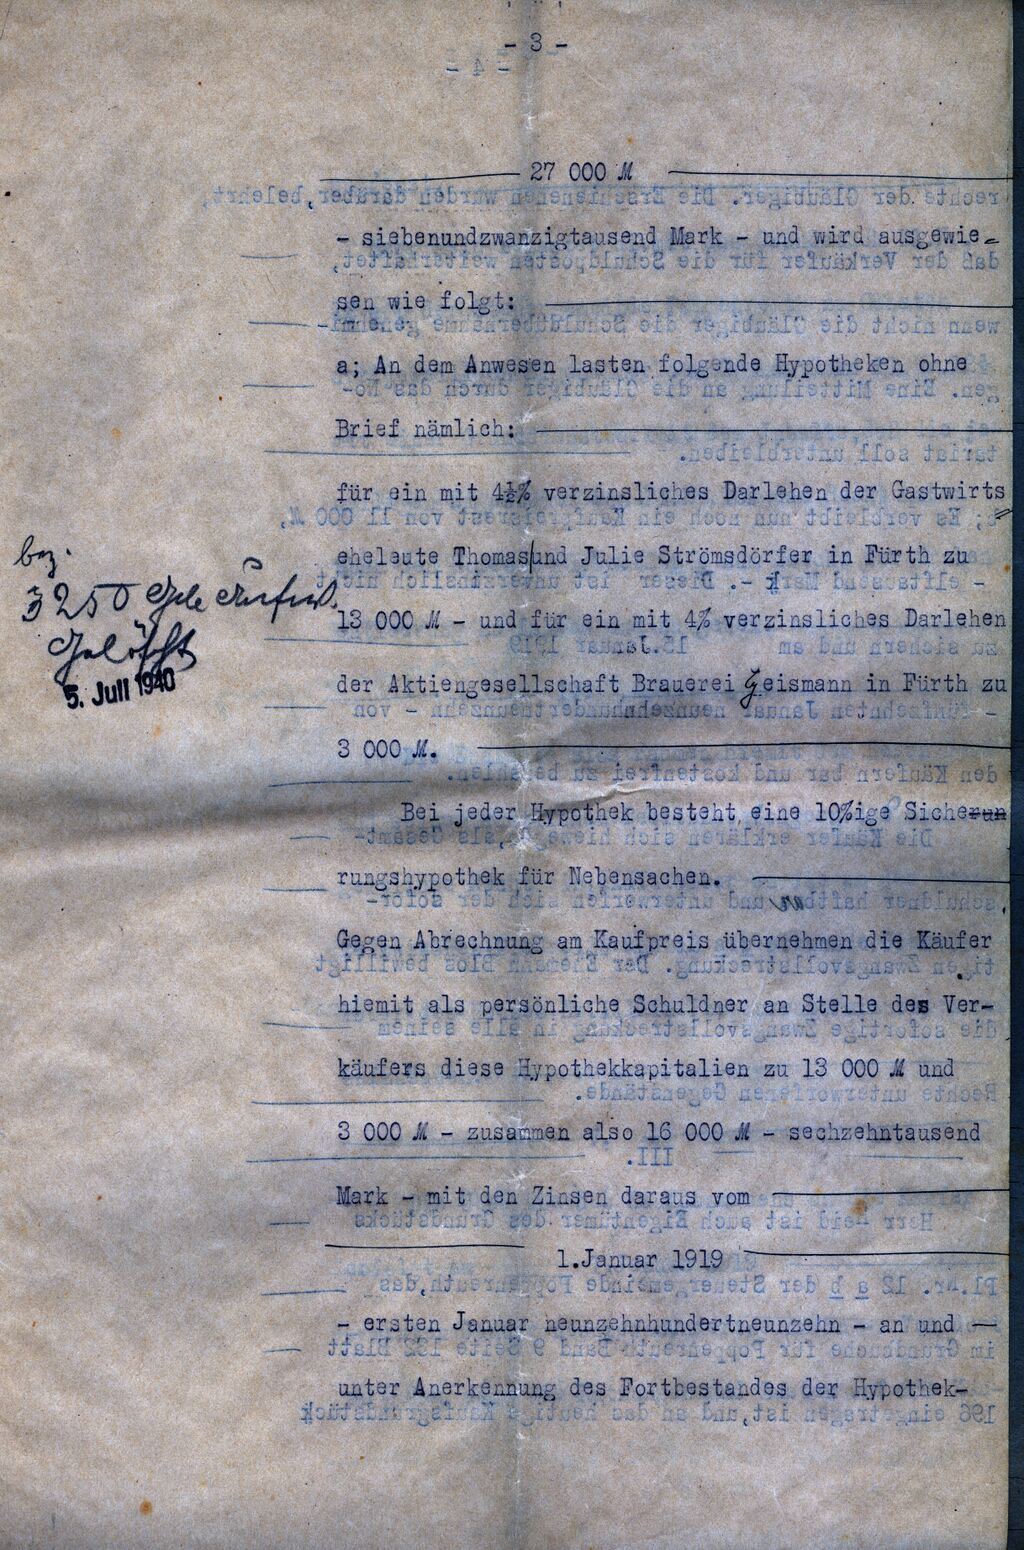 - 3 -
27 000 M
- siebenundzwanzigtausend Mark - und wird ausgewie-
sen wie folgt:
a; An dem Anwesen lasten folgende Hypotheken ohne
Brief nämlich:
für ein mit 4½% verzinsliches Darlehen der Gastwirts
eheleute Thomas und Julie Strömsdörfer in Fürth zu
13 000 M - und für ein mit 4% verzinsliches Darlehen
der Aktiengesellschaft Brauerei Geismann in Fürth zu
3 000 M.
Bei jeder Hypothek besteht eine 10%ige Sicherun
rungshypothek für Nebensachen.
Gegen Abrechnung am Kaufpreis übernehmen die Käufer
hiemit als persönliche Schuldner an Stelle des Ver-
käufers diese Hypothekkapitalien zu 13 000 M und
3 000 M - zusammen also 16 000 M - sechzehntausend
Mark - mit den Zinsen daraus vom
1.Januar 1919
- ersten Januar neunzehnhundertneunzehn - an und
unter Anerkennung des Fortbestandes der Hypothek-
bez.
3250
Gelöscht
5. Juli 1940